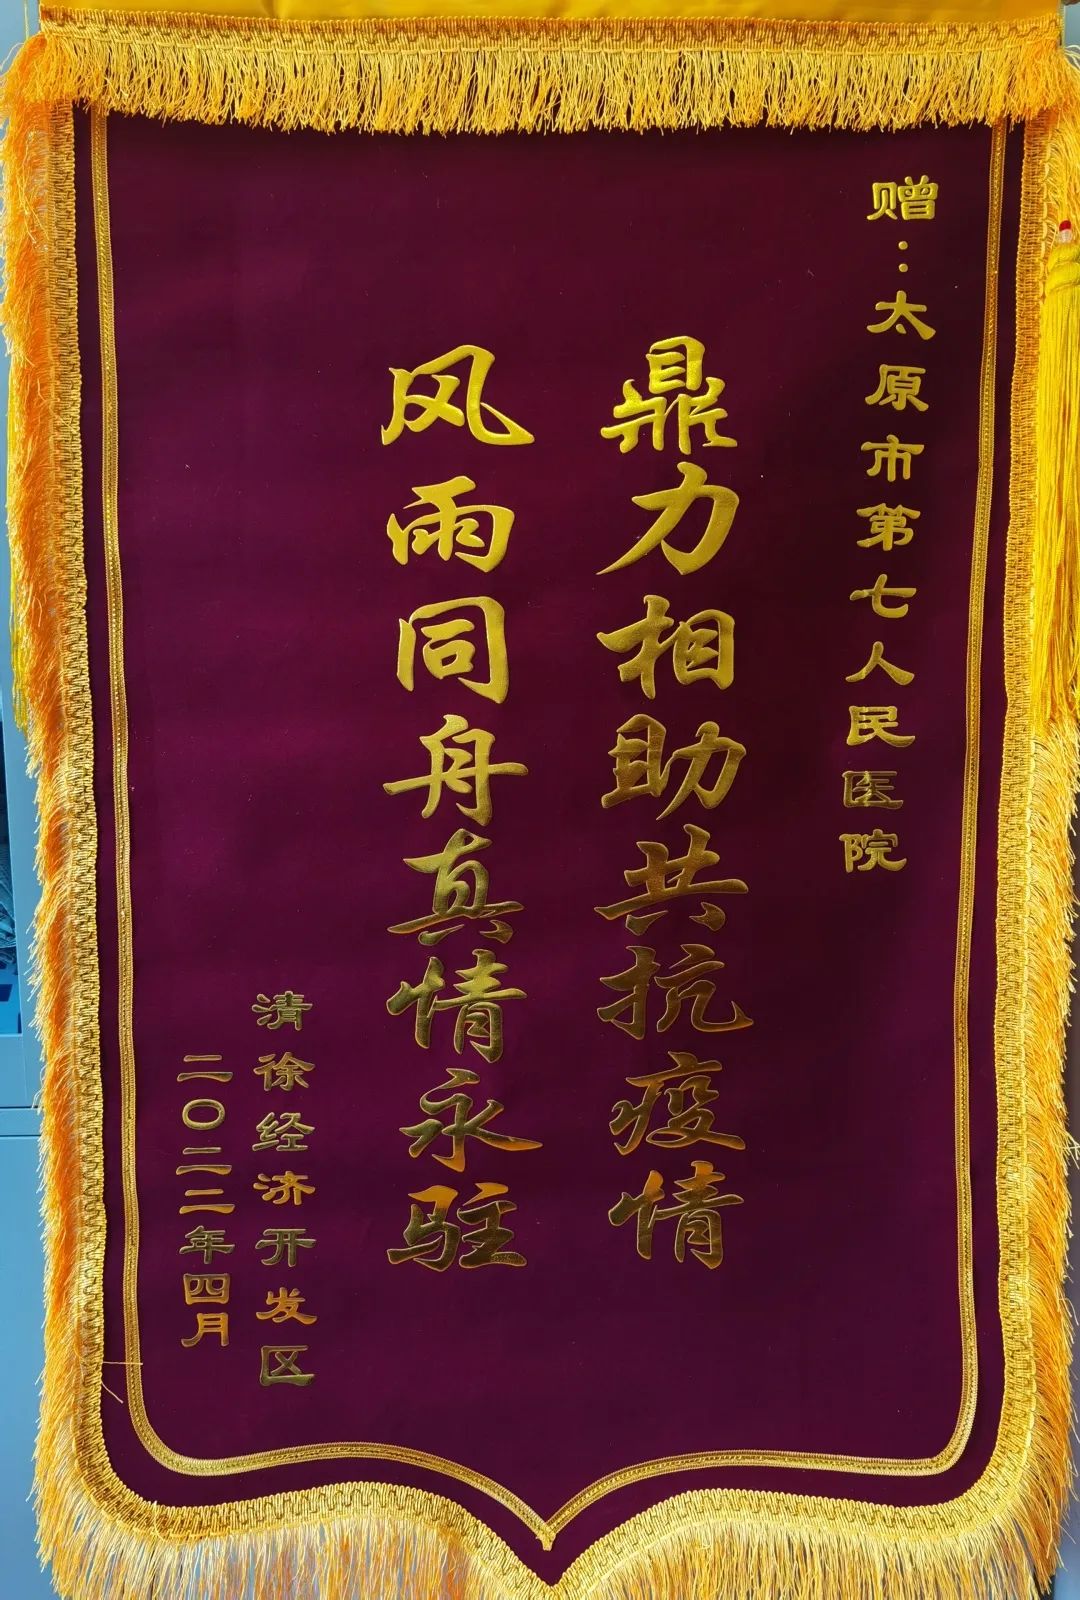 赠：太原市第七人民医院
鼎力相助共抗疫情
风雨同舟真情永驻
清徐经济开发区
二〇二二年四月